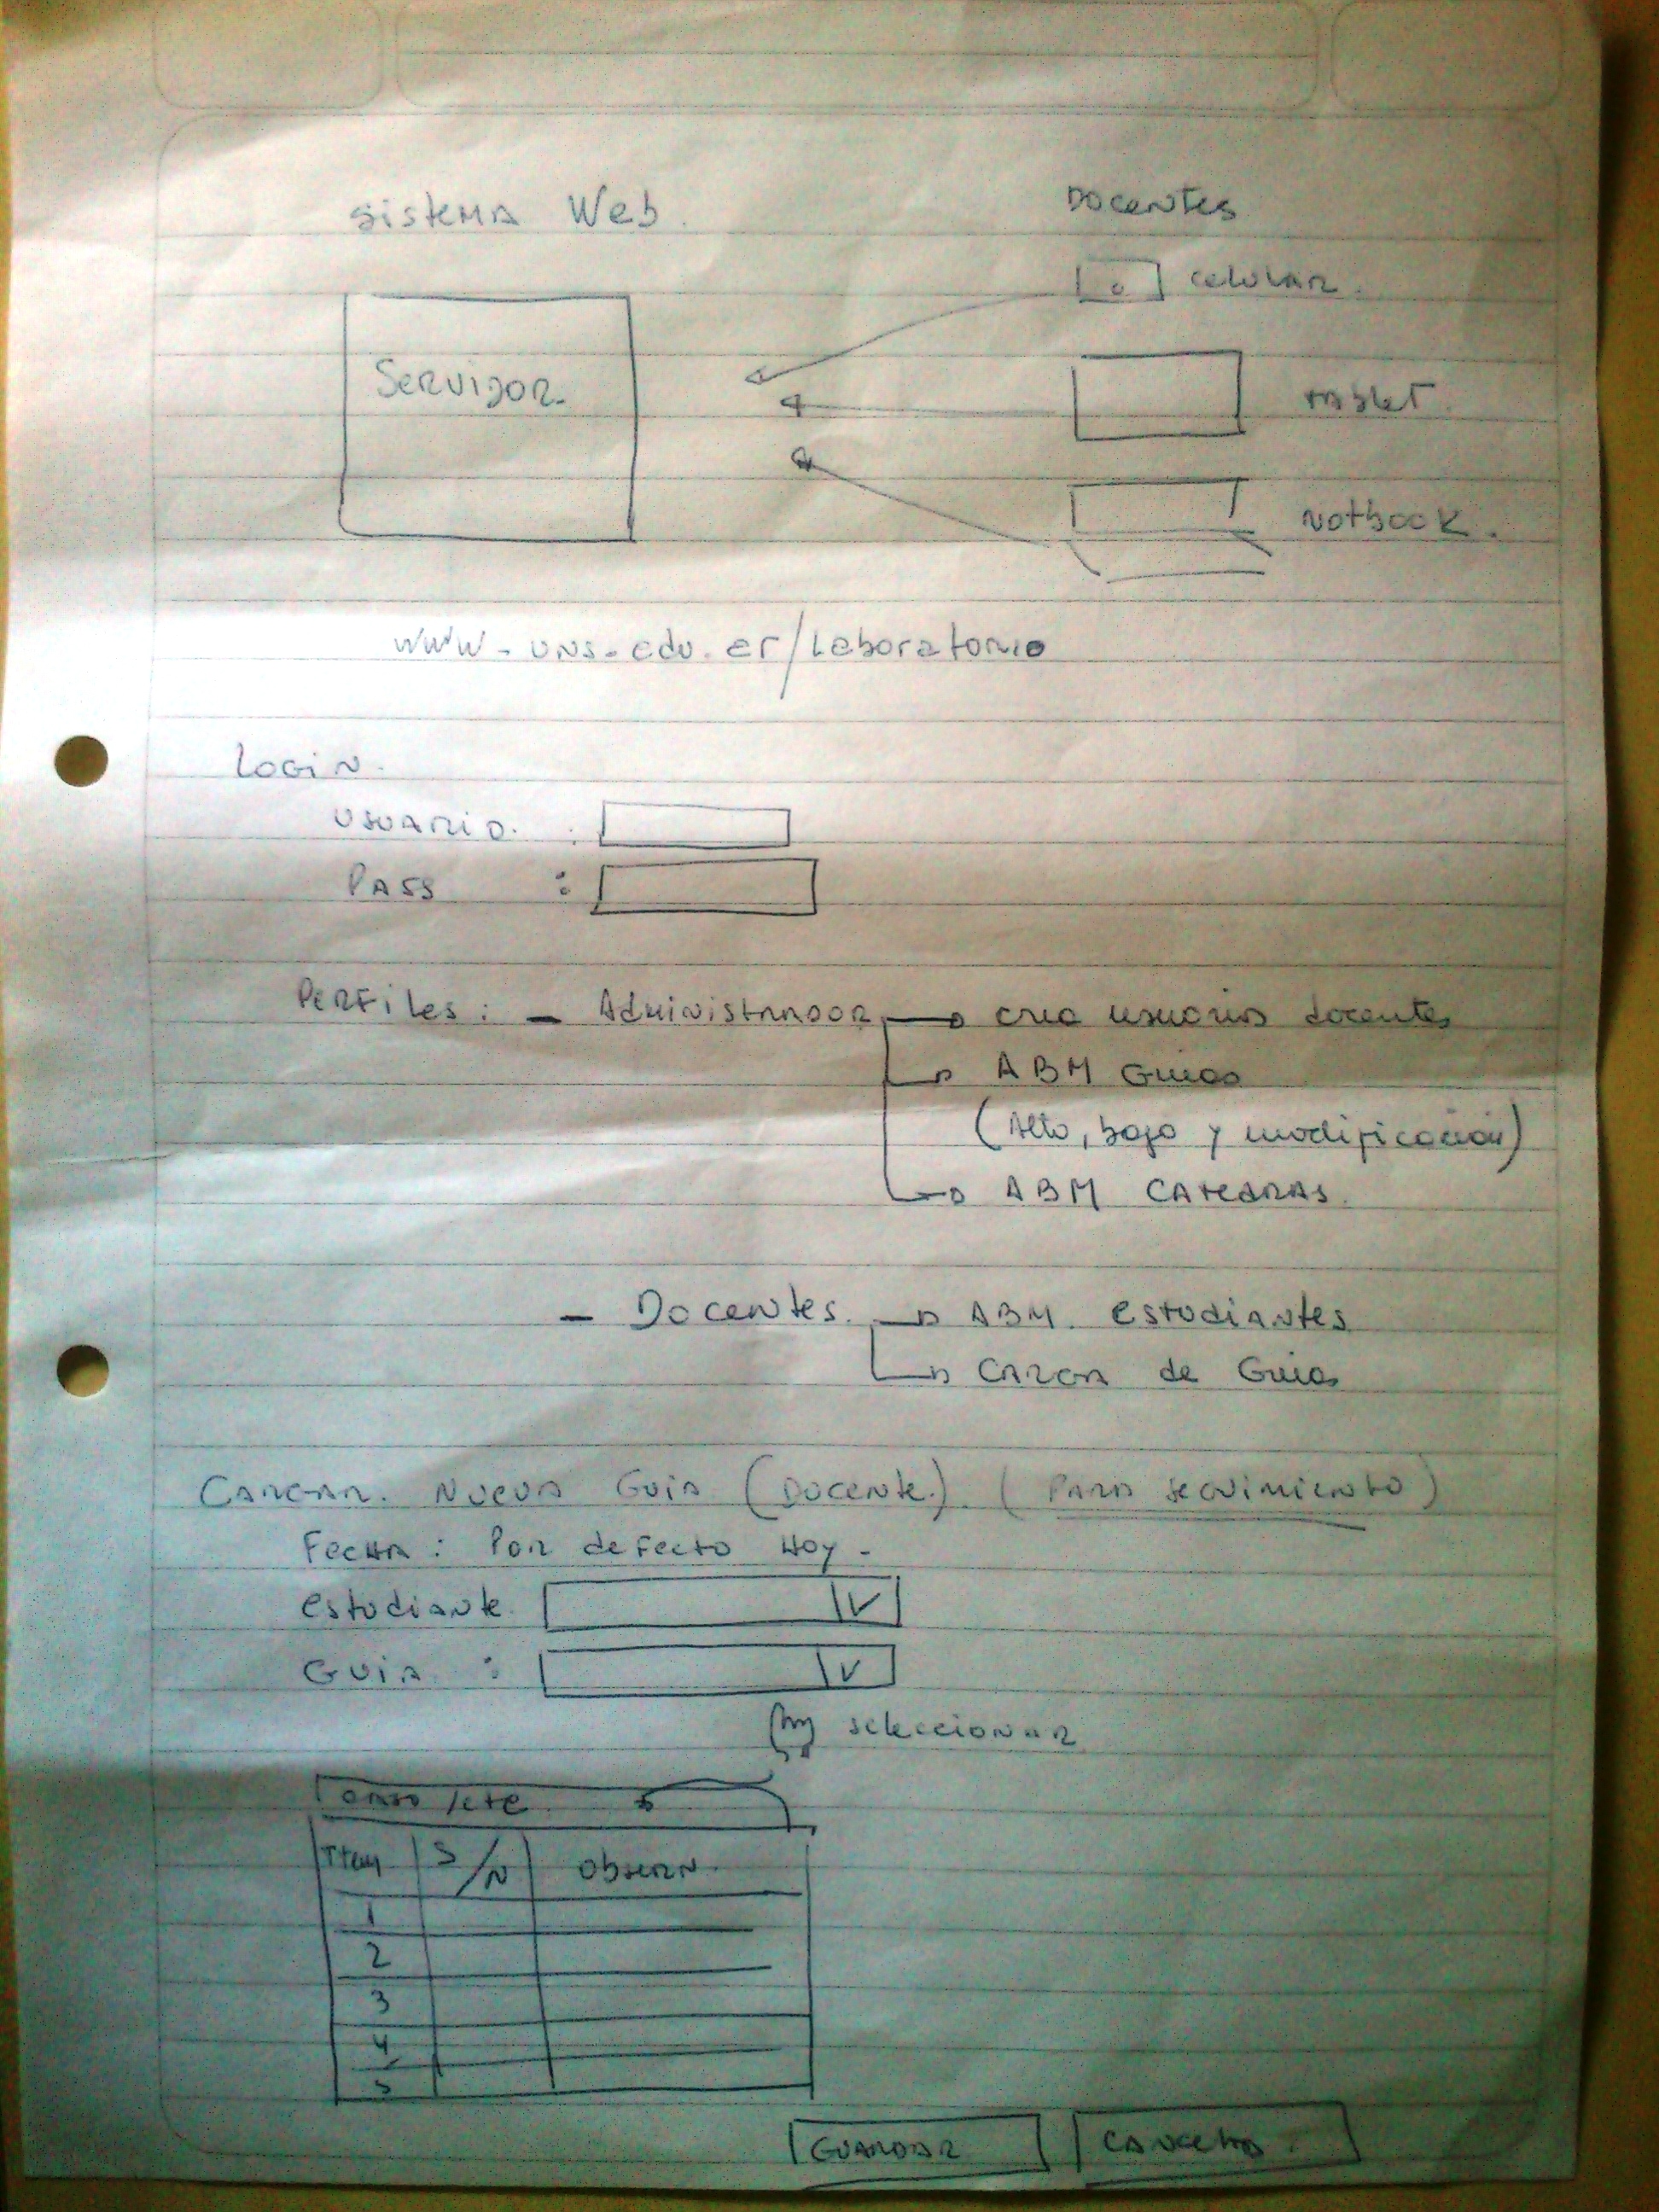 Sistema Web.
Docentes
celular.
Servidor.
tablet.
Notbook.
www.uns.edu.ar/Laboratorio
Login.
Usuario. :
Pass :
Perfiles: - Administrador → crea usuarios docentes
→ ABM Guias
(Alta, baja y modificación)
→ ABM Catedras.
- Docentes. → ABM. estudiantes
→ Carga de Guias
Cargar. Nueva Guia (Docente.). (Para seguimiento)
Fecha: Por defecto Hoy -
estudiante
Guia :
seleccionar
Item S/N Observ.
1
2
3
4
5
Guardar Cancelar.